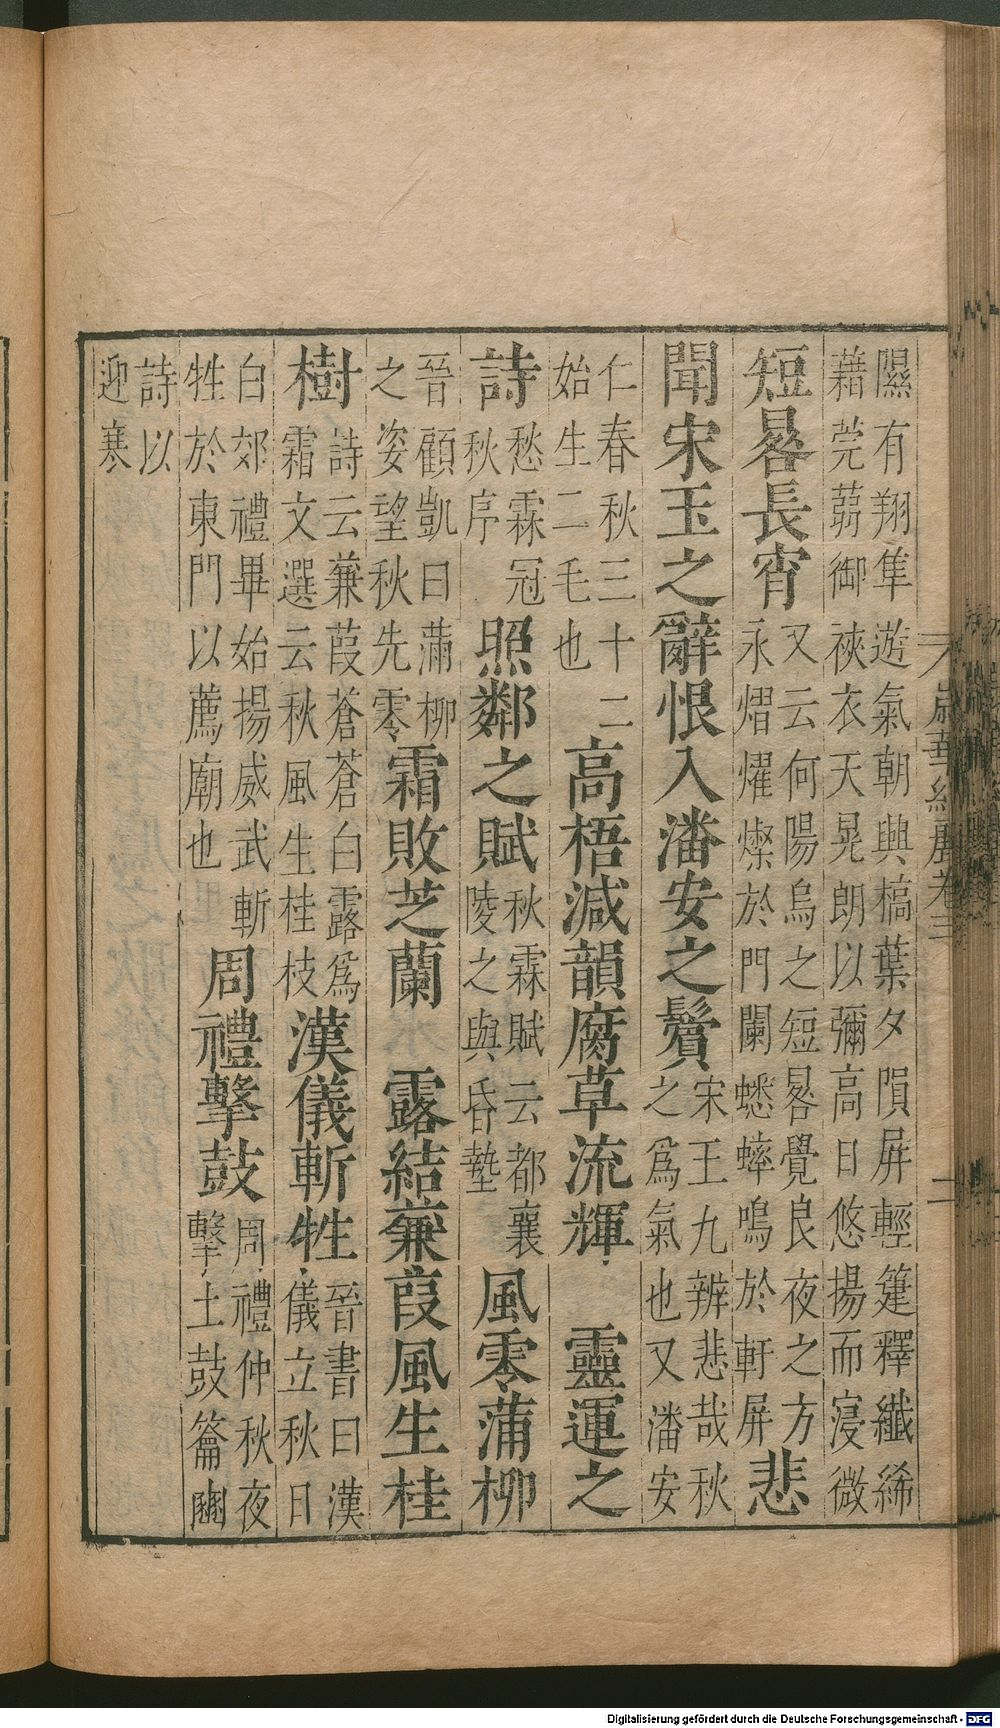 隰有翔隼遊氣朝興槁葉夕隕屏輕箑釋纖絺
藉莞蒻御裌衣天晃朗以彌高日悠揚而寖微
短晷長宵
又云何陽烏之短晷覺良夜之方
永熠燿燦於門闌蟋蟀鳴於軒屏
悲
聞宋玉之辭恨入潘安之鬢
宋王九辨悲哉秋
之爲氣也又潘安
仁春秋三十二
始生二毛也
高梧減韻腐草流輝 靈運之
詩
愁霖冠
秋序
照鄰之賦
秋霖賦云都襄
陵之與昏墊
風零蒲柳
晉顧凱曰蒲柳
之姿望秋先零
霜敗芝蘭 露結蒹葭風生桂
樹
詩云蒹葭蒼蒼白露爲
霜文選云秋風生桂枝
漢儀斬牲
晉書曰漢
儀立秋日
白郊禮畢始揚威武斬
牲於東門以薦廟也
周禮擊鼓
周禮仲秋夜
擊土鼓籥豳
詩以
迎寒
歲華紀麗卷三 二
Digitalisierung gefördert durch die Deutsche Forschungsgemeinschaft - DFG